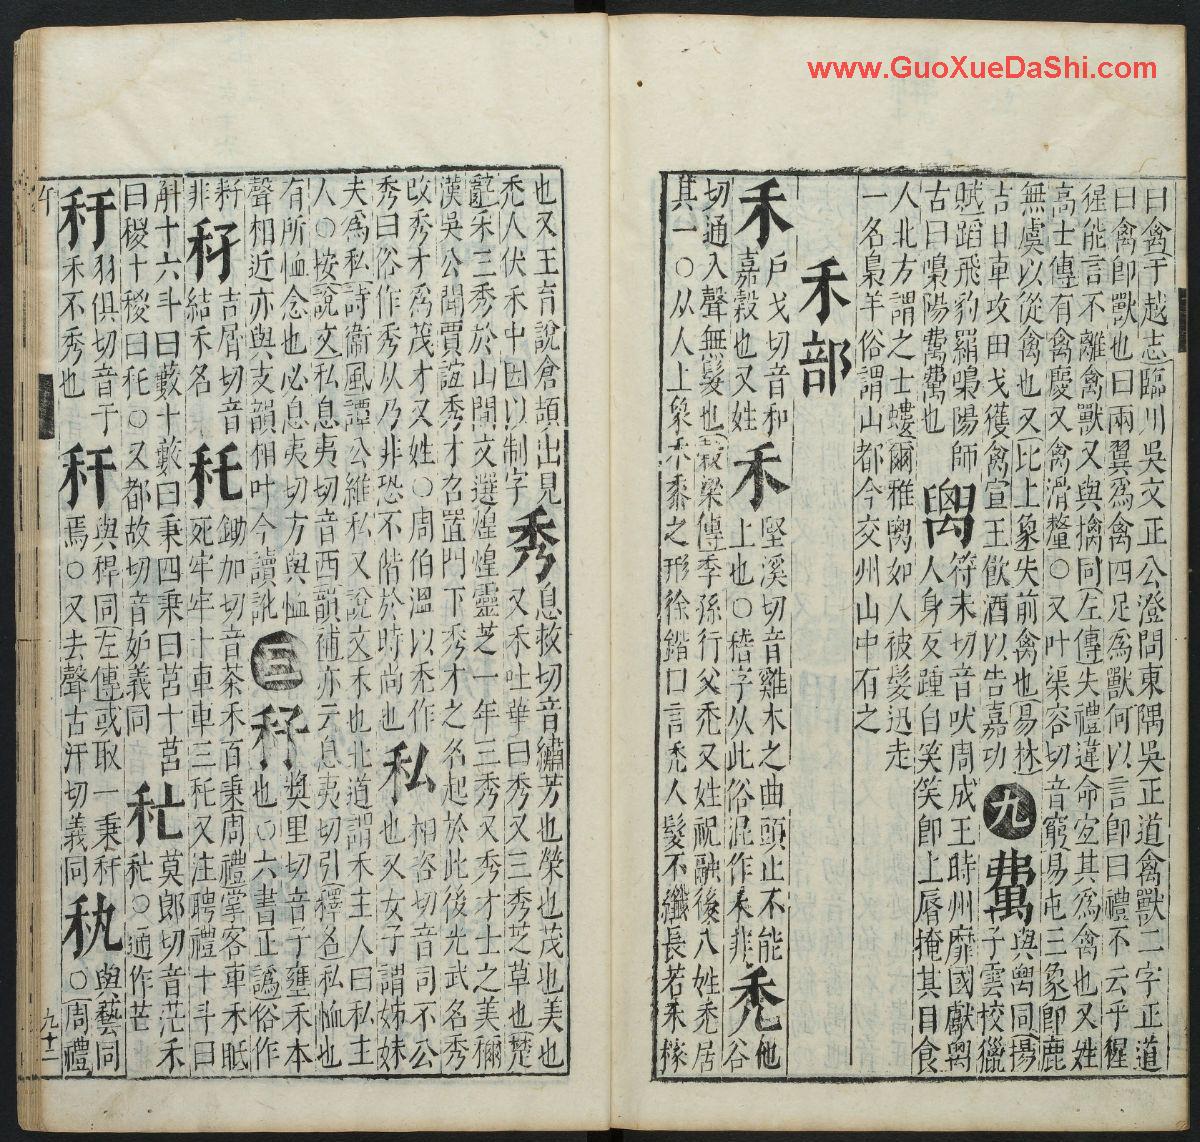 www.GuoXueDaShi.com
曰禽于越志臨川吳文正公澄問東隅吳正道禽獸二字正道
曰禽卽獸也曰兩翼爲禽四足爲獸何以言卽曰禮不云乎猩
猩能言不離禽獸又與擒同左傳失禮違命宜其爲禽也又姓
高士傳有禽慶又禽滑釐○又叶渠容切音窮易屯三象卽鹿
無虞以從禽也又比上象失前禽也易林
吉日車攻田戈獲禽宣王飲酒以告嘉功 九 𥝋 與𥜿同揚
子雲校獵
賦蹈飛豹羂噑陽師
古曰噑陽費費也 𥜿 符未切音吠周成王時州靡國獻𥜿
人身反踵自笑笑卽上脣掩其目食
人北方謂之土螻爾雅𥜿如人被髮迅走
一名梟羊俗謂山都今交州山中有之
禾部
禾 戶戈切音和
嘉穀也又姓 禾 堅溪切音雞木之曲頭止不能
上也○稽字从此俗混作禾非 禿 他
谷
切通入聲無髮也穀梁傳季孫行父禿又姓祝融後八姓禿居
其一○从人上象禾黍之形徐鍇曰言禿人髮不纖長若禾稼
也又王育說倉頡出見
禿人伏禾中因以制字 秀 息救切音繡芳也榮也茂也美也
又禾吐華曰秀又三秀芝草也楚
辭采三秀於山閒文選煌煌靈芝一年三秀又秀才士之美稱
漢吳公聞賈誼秀才召置門下秀才之名起於此後光武名秀
改秀才爲茂才又姓○周伯溫以禿作
秀曰俗作秀从乃非恐不偕於時尚也 私 相咨切音司不公
也又女子謂姊妹
夫爲私詩衛風譚公維私又說文禾也北道謂禾主人曰私主
人○按說文私息夷切音西韻補亦云息夷切引釋名私恤也
有所恤念也必息夷切方與恤
聲相近亦與支韻相叶今讀訛 三 秄 獎里切音子壅禾本
也○六書正譌俗作
籽
非 秸 吉屑切音
結禾名 秅 鋤加切音茶禾百秉周禮掌客車禾眂
死牢牢十車車三秅又注聘禮十斗曰
斛十六斗曰籔十籔曰秉四秉曰筥十筥
曰稯十稯曰秅○又都故切音妒義同 秇 莫郎切音茫禾
秇○通作芒
秆 羽俱切音于
禾不秀也 秆 與稈同左傳或取一秉秆
焉○又去聲古汗切義同 秇 與藝同
○周禮
午 九十二